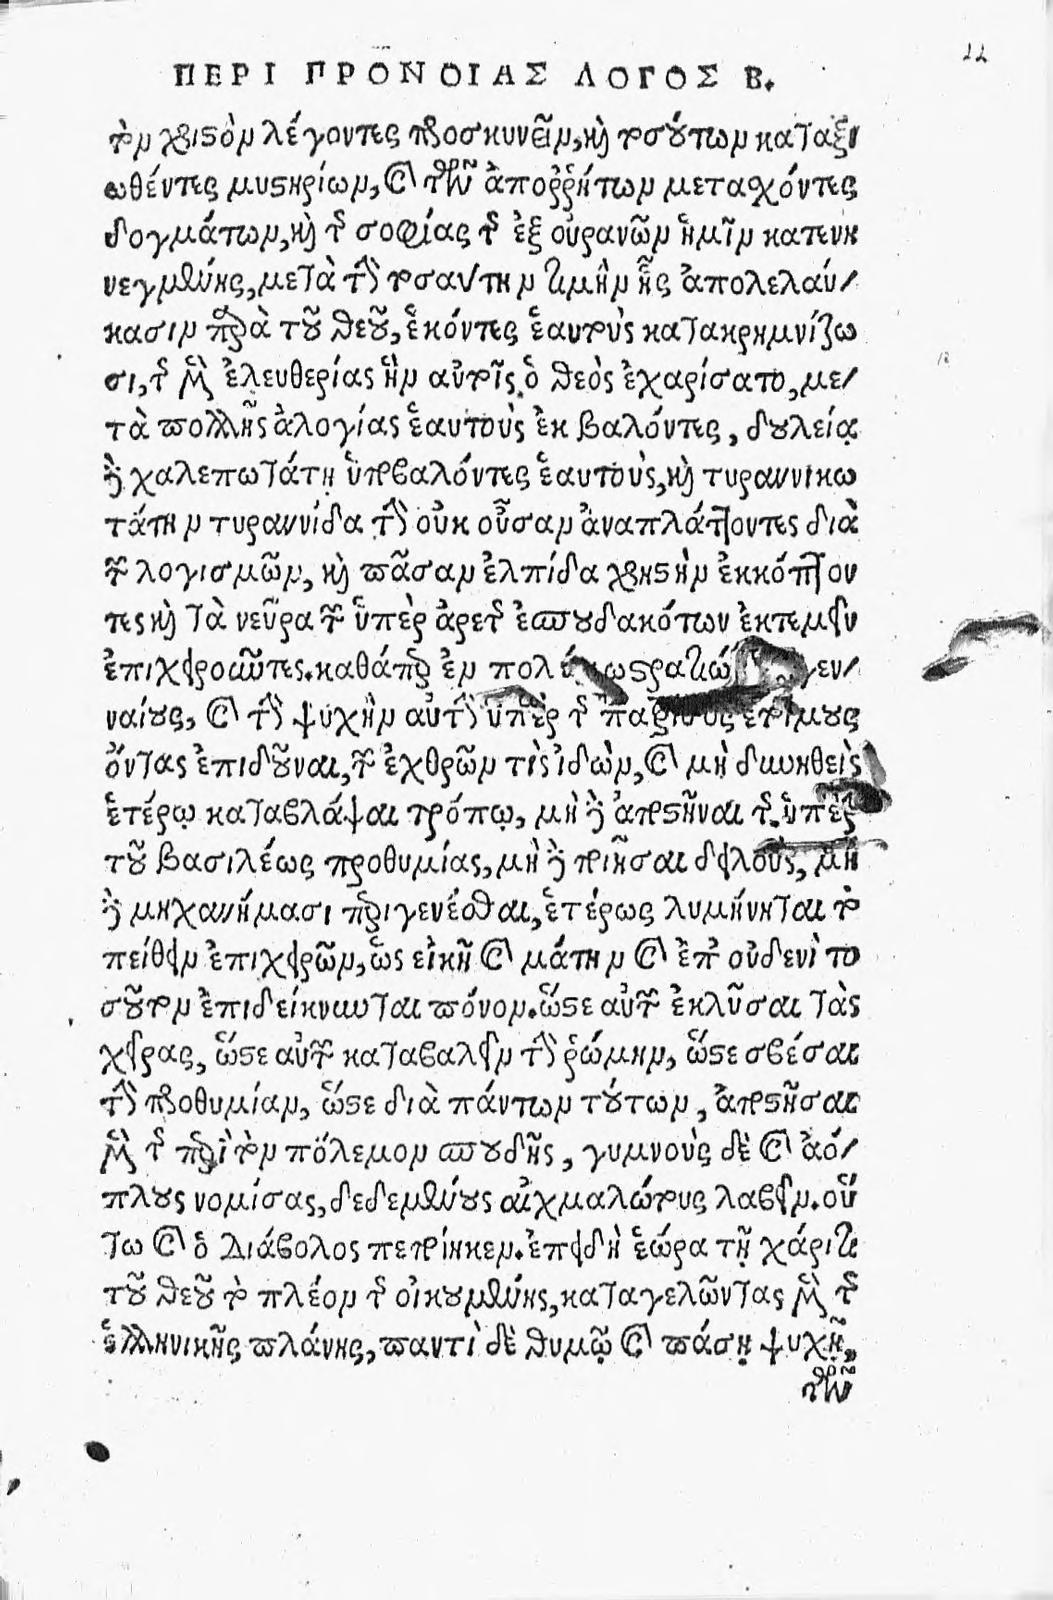 ΠΕΡΙ ΠΡΟΝΟΙΑΣ ΛΟΓΟΣ Β.
τὸν χριστὸν λέγοντες προσκυνεῖν, καὶ τοσούτων καταξι
ωθέντες μυστηρίων, καὶ τῶν ἀπορρήτων μετασχόντες
δογμάτων, καὶ τῆς σοφίας τῆς ἐξ οὐρανῶν ἡμῖν κατενη
νεγμένης, μετὰ τὴν τοσαύτην τιμὴν ἧς ἀπολελαύ/
κασιν παρὰ τοῦ θεοῦ, ἑκόντες ἑαυτοὺς κατακρημνίζω
σι, τῆς μὲν ἐλευθερίας ἣν αὐτοῖς ὁ θεὸς ἐχαρίσατο, με/
τὰ πολλῆς ἀλογίας ἑαυτοὺς ἐκβαλόντες, δουλείᾳ
δὲ χαλεπωτάτῃ ὑποβαλόντες ἑαυτοὺς, καὶ τυραννικω
τάτην τυραννίδα τὴν οὐκ οὖσαν ἀναπλάττοντες διὰ
τῶν λογισμῶν, καὶ πᾶσαν ἐλπίδα χρηστὴν ἐκκόπτον
τες καὶ τὰ νεῦρα τῶν ὑπὲρ ἀρετῆς ἐσπουδακότων ἐκτεμεῖν
ἐπιχειροῦντες. καθάπερ ἐν πολέμῳ στρατιώτας γεν/
ναίους, καὶ τὴν ψυχὴν αὐτὴν ὑπὲρ τῆς πατρίδος ἑτοίμους
ὄντας ἐπιδοῦναι, τῶν ἐχθρῶν τὶς ἰδὼν, καὶ μὴ δυνηθεὶς
ἑτέρῳ καταβλάψαι τρόπῳ, μὴ δὲ ἀποστῆναι τῆς ὑπὲρ
τοῦ βασιλέως προθυμίας, μὴ δὲ ποιῆσαι δειλοὺς, μὴ
δὲ μηχανήμασι περιγενέσθαι, ἑτέρως λυμήνηται τὸ
πείθειν ἐπιχειρῶν, ὡς εἰκῆ καὶ μάτην καὶ ἐπ' οὐδενὶ το
σοῦτον ἐπιδείκνυνται πόνον. ὥστε αὐτῶν ἐκλῦσαι τὰς
χεῖρας, ὥστε αὐτῶν καταβαλεῖν τὴν ῥώμην, ὥστε σβέσαι
τὴν προθυμίαν, ὥστε διὰ πάντων τούτων, ἀποστῆσαι
μὲν τῆς περὶ τὸν πόλεμον σπουδῆς, γυμνοὺς δὲ καὶ ἀό/
πλους νομίσας, δεδεμένους αἰχμαλώτους λαβεῖν. οὕ
τω καὶ ὁ Διάβολος πεποίηκεν. ἐπειδὴ ἑώρα τῇ χάριτι
τοῦ θεοῦ τὸ πλέον τῆς οἰκουμένης, καταγελῶντας μὲν τῆς
ἑλληνικῆς πλάνης, παντὶ δὲ θυμῷ καὶ πάσῃ ψυχῇ,
τῶν